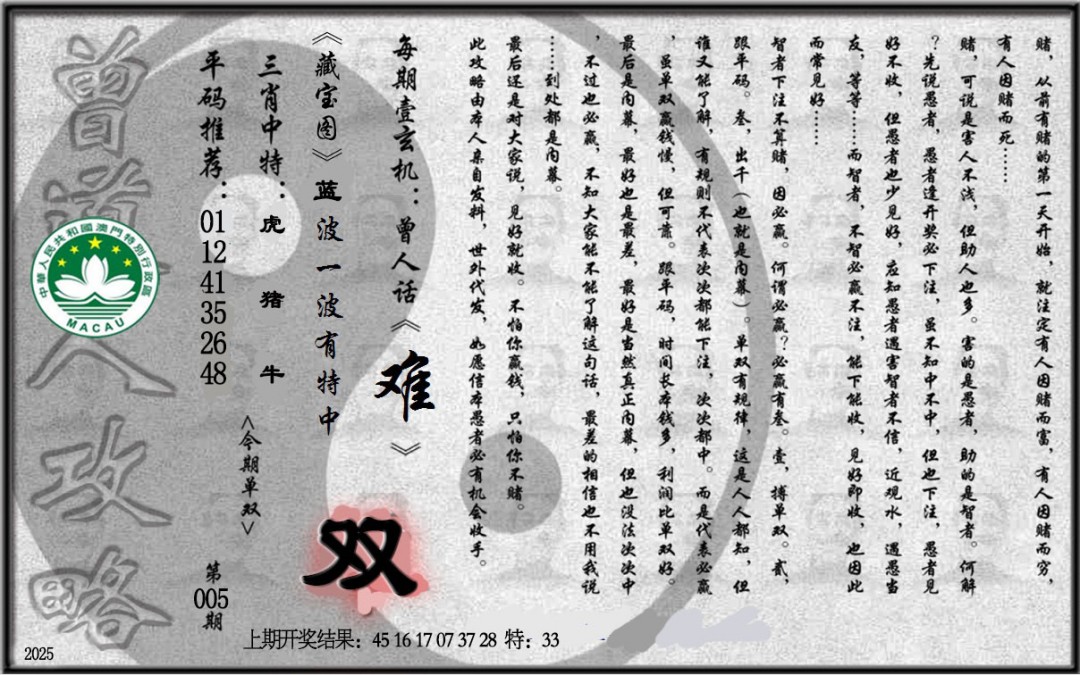 赌，从前有赌的第一天开始，就注定有人因赌而富，有人因赌而穷，
有人因赌而死……
赌，可说是害人不浅，但助人也多。害的是愚者，助的是智者。何解
？先说愚者，愚者逢开奖必下注，虽不知中不中，但也下注，愚者见
好不收，但愚者也少见好，应知愚者遇害智者不信，近观水，遇愚当
友，等等……而智者，不智必赢不注，能下能收，见好即收，也因此
而常见好……
智者下注不算赌，因必赢。何谓必赢？必赢有叁。壹，搏单双。贰，
跟平码。叁，出千（也就是内幕）。单双有规律，这是人人都知，但
谁又能了解，有规则不代表次次都能下注，次次都中。而是代表必赢
，虽单双赢钱慢，但可靠。跟平码，时间长本钱多，利润比单双好。
最后是内幕，最好也是最差，最好是当然真正内幕，但也没法次次中
，不过也必赢，不知大家能不能了解这句话，最差的相信也不用我说
……到处都是内幕。
最后还是对大家说，见好就收。不怕你赢钱，只怕你不赌。
此攻略由本人亲自发料，世外代发，如愿信本愚者必有机会收手。
每期壹玄机：曾人话《难》
《藏宝图》蓝波一波有特中
双
三肖中特：虎 猪 牛
<今期单双>
平码推荐：01 12 41 35 26 48
第005期
曾道人攻略
中華人民共和國澳門特別行政區
MACAU
上期开奖结果：45 16 17 07 37 28 特：33
2025